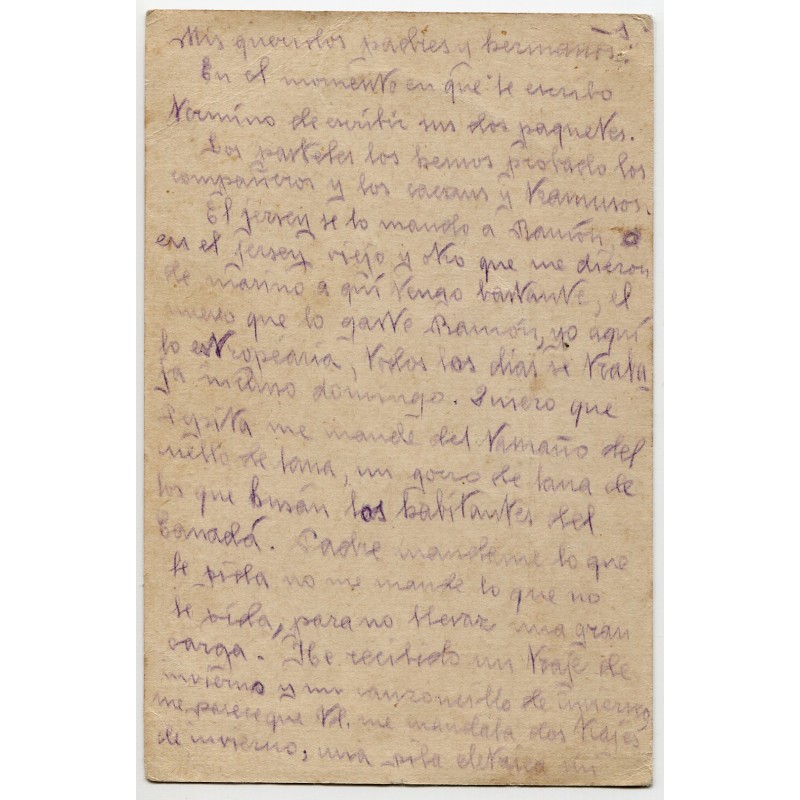 Mis queridos padres y hermanos:
En el momento en que te escribo
termino de escribir sus dos paquetes.
Los pasteles los hemos probado los
compañeros y los cacaus y tramusos.
El jersey se lo mando a Ramón,
en el jersey viejo y otro que me dieron
de marino a quí tengo bastante, el
nuevo que lo gaste Ramón, yo aquí
lo estropearia, todos los dias se traba
ja incluso domingo. Quiero que
Pepita me mande del tamaño del
de lana, un gorro de lana de
los que husan los habitantes del
Canadá. Padre mandeme lo que
le pida no me mande lo que no
le pida, para no llevar una gran
carga. He recibido un traje de
invierno y un calzoncillo de invierno,
me parece que Vd. me mandaba dos trajes
de invierno, una pila eletrica un